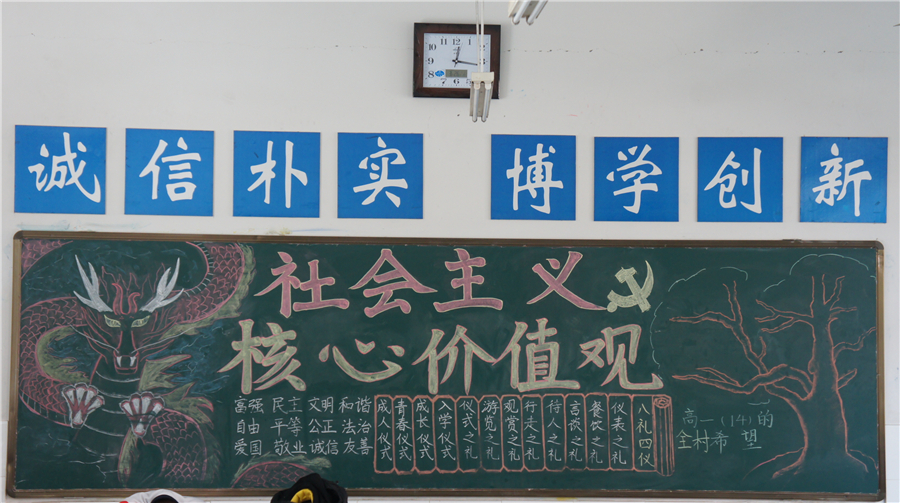 诚信朴实 博学创新
社会主义
核心价值观
富强 民主 文明 和谐
自由 平等 公正 法治
爱国 敬业 诚信 友善
八礼四仪
仪表之礼
餐饮之礼
言谈之礼
待人之礼
行走之礼
观赏之礼
游览之礼
仪式之礼
入学仪式
成长仪式
青春仪式
成人仪式
高一(14)的
全村希望